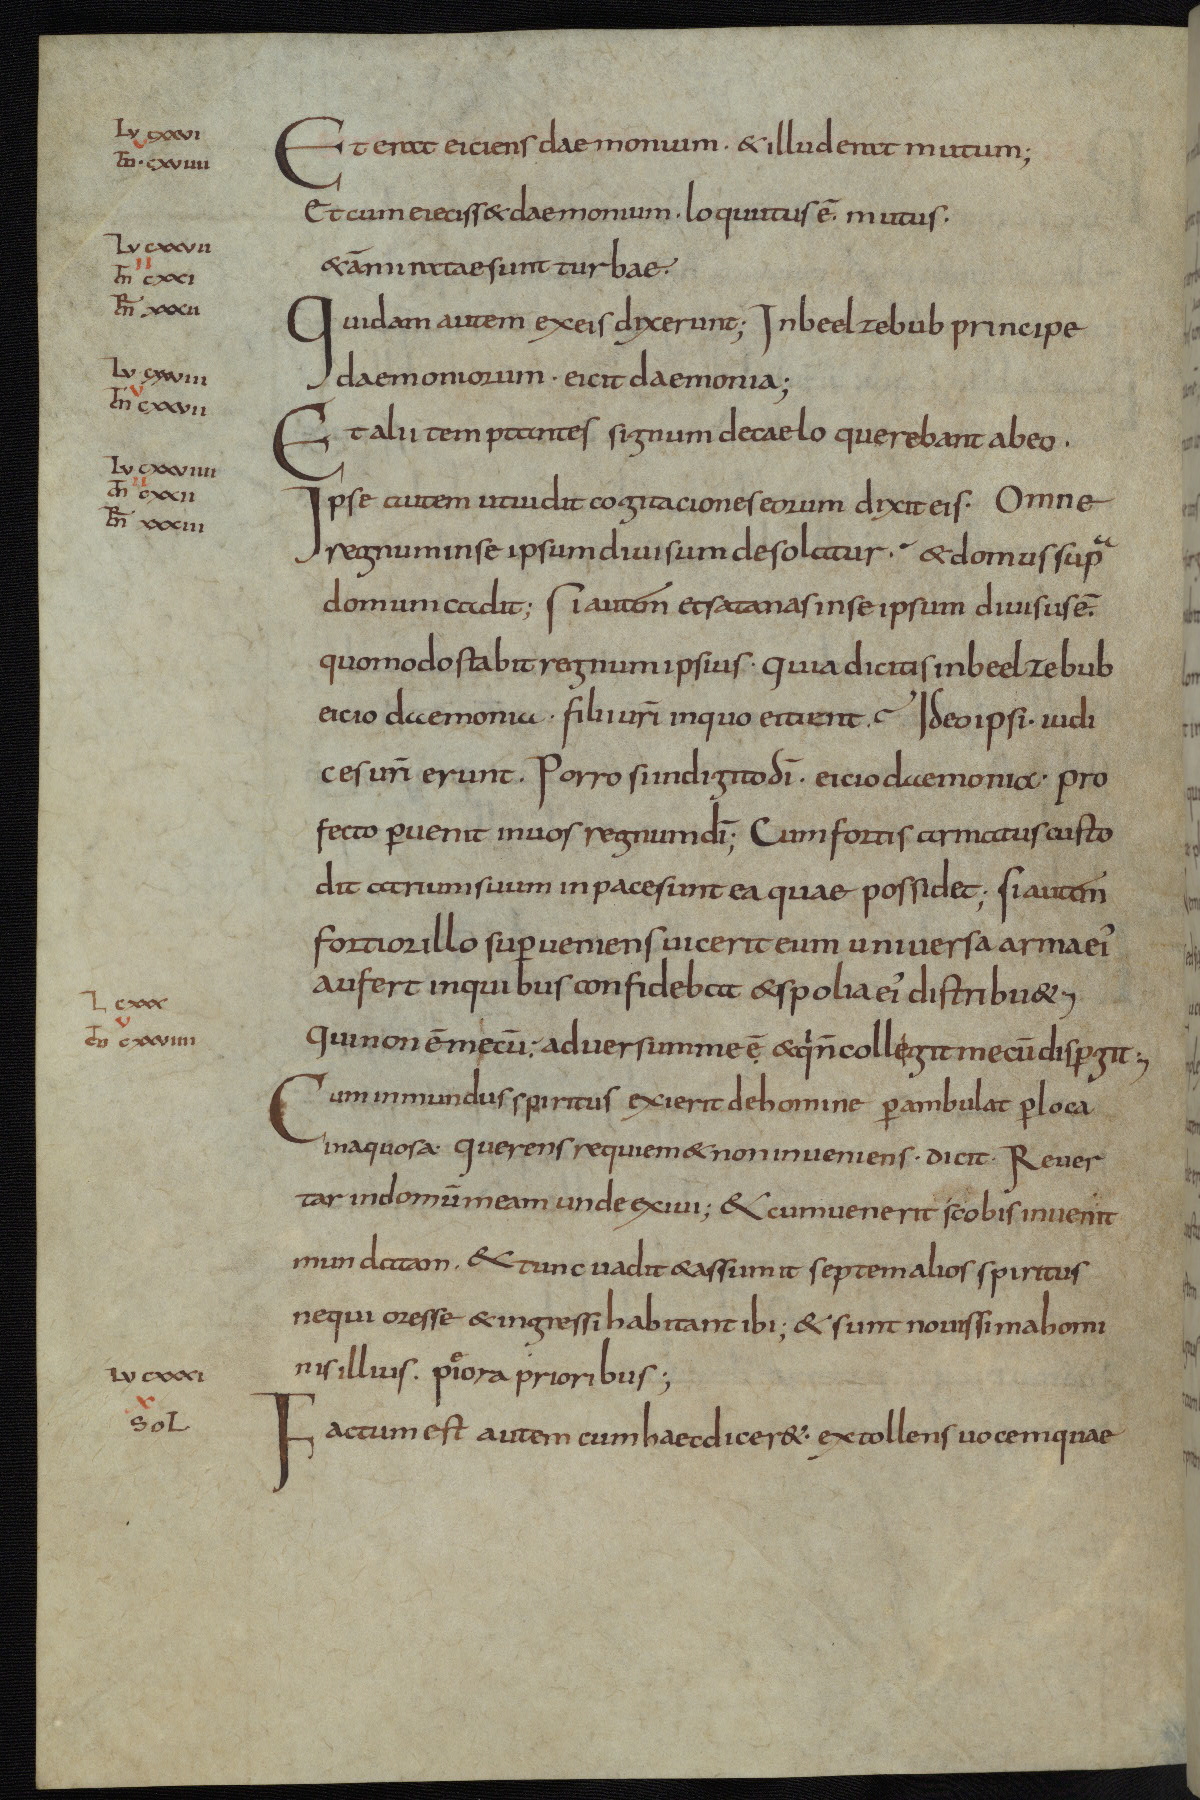 Lv cxxvi
v
m̄ · cxviiii
Et erat eiciens daemonium · & illud erat mutum;
Et cum eieciss& daemonium · loquutus ē · mutus ·
Lv cxxvii
ii
m̄ cxxi
m̄ xxxii
& āmiratae sunt turbae ·
Quidam autem ex eis dixerunt; In beelzebub principe
daemoniorum · eicit daemonia;
Lv cxxviii
v
m̄ cxxvii
Et alii temptantes signum de caelo querebant ab eo ·
Lv cxxviiii
ii
m̄ cxxii
m̄ xxxiii
Ipse autem ut uidit cogitaciones eorum dixit eis · Omne
regnum in se ipsum diuisum desolatur · & domus supa
domum cadit; Si autem et satanas in se ipsum diuisus ē ·
quomodo stabit regnum ipsius · quia dicitis in beelzebub
eicio daemonia · filii uri̅ in quo eiciunt · Ideo ipsi · iudi
ces uri̅ erunt · Porro si in digito di̅ · eicio daemonia · pro
fecto p̱uenit in uos regnum di̅; Cum fortis armatus custo
dit atrium suum in pace sunt ea quae possidet; si autem
fortior illo sup̱ueniens uicerit eum uniuersa arma ei᾿
aufert in quibus confidebat & spolia ei᾿ distribu&;
L cxxx
v
m̄ cxxviiii
Qui non ē mecū · aduersum me ē · & qi n̄ collegit mecū disp̱git;
Cum inmundus spiritus exierit de homine p̱ambulat p̱ loca
inaquosa · querens requiem & non inueniens · dicit · Reuer
tar in domū meam unde exiui; & cum uenerit scobis inuenit
mundatam · & tunc uadit & assumit septem alios spiritus
nequiores se & ingressi habitant ibi; & sunt nouissima homi
nis illius · peiora prioribus;
Lv cxxxi
x
SoL
Factum est autem cum haec dicer& · extollens uocem quae